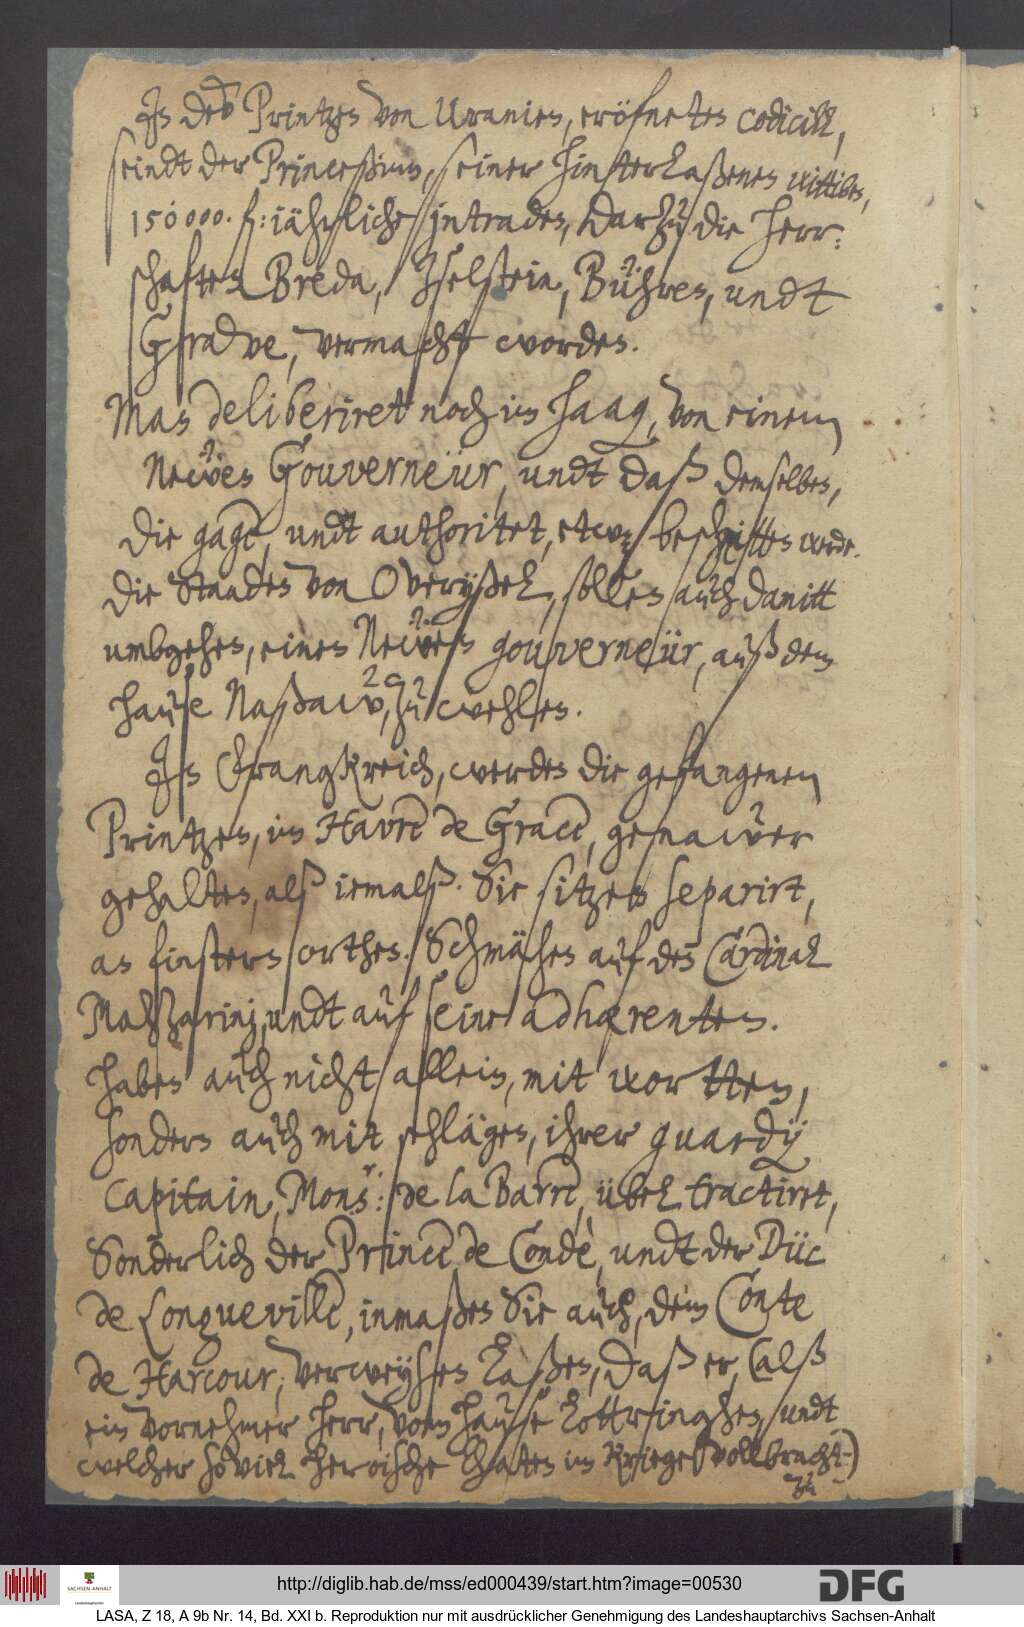 In des Printzen von Uranien, eröfneten codicill,
seindt der Princeßinn, seiner hinterlaßenen wittiben,
150000. f: iährliche intraden, darzu die Herr-
schaften Breda, Iselstein, Bühren, undt
Grave, vermacht worden.
Man deliberiret noch im Haag, von einem
Neẅen Gouverneür, undt daß demselben,
die gage, undt authoritet, etwaß beschnitten werde.
Die Staaden von Overyßel, sollen auch damitt
umbgehen, einen Neẅen gouverneür, auß dem
hause Naßaw, zu wehlen.
In Frangkreich, werden die gefangenen
Printzen, im Havre de Grace, genawer
gehalten, alß iemalß. Sie sitzen separirt,
an finstern orthen. Schmähen auf den Cardinal
Mazzarinj, undt auf seine adhærenten.
haben auch nicht allein, mit wortten,
sondern auch mit schlägen, ihrer guardy
Capitain, Monsr: de la Barre, übel tractiret,
Sonderlich der Prince de Condè, undt der Düc
de Longueville, inmaßen Sie auch, dem Conte
de Harcour, verweysen laßen, daß er, (alß
ein vornehmer Herr, vom hause Lottringhen, undt
welcher soviel heroische thaten im Kriege vollbracht)
zu
http://diglib.hab.de/mss/ed000439/start.htm?image=00530
DFG
SACHSEN-ANHALT
LASA, Z 18, A 9b Nr. 14, Bd. XXI b. Reproduktion nur mit ausdrücklicher Genehmigung des Landeshauptarchivs Sachsen-Anhalt